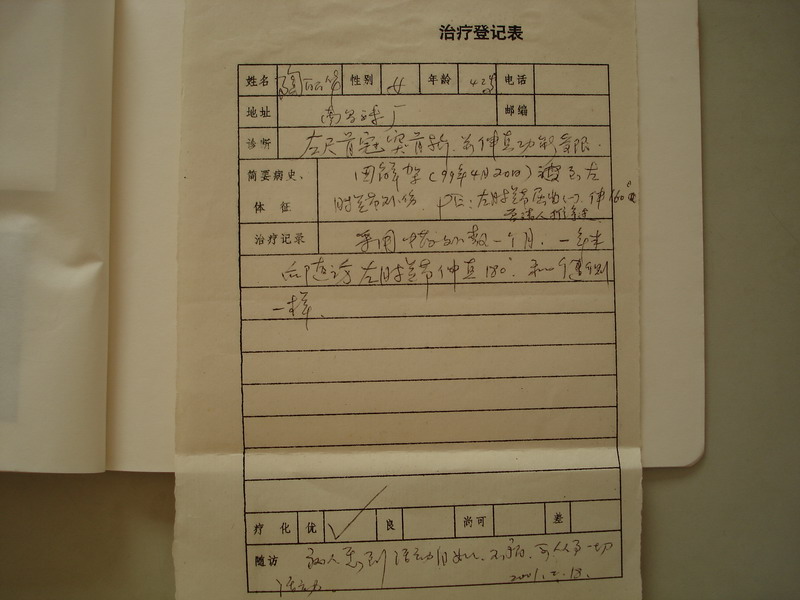 治疗登记表
姓名 性别 女 年龄 42岁 电话
地址 南昌 厂 邮编
诊断 左尺骨冠突骨折 伸直功能受限.
简要病史、 因 架(99年4月20日) 左
体征 肘关节外伤 PE:左肘关节 伸160°
治疗记录 采用中药外敷一个月. 一年半
后随访左肘关节伸直180°. 和 侧
一样.
疗化 优 ✓ 良 尚可 差
随访 病人 到活动自如. 不痛. 可从事一切
活动. 2001.2.18.